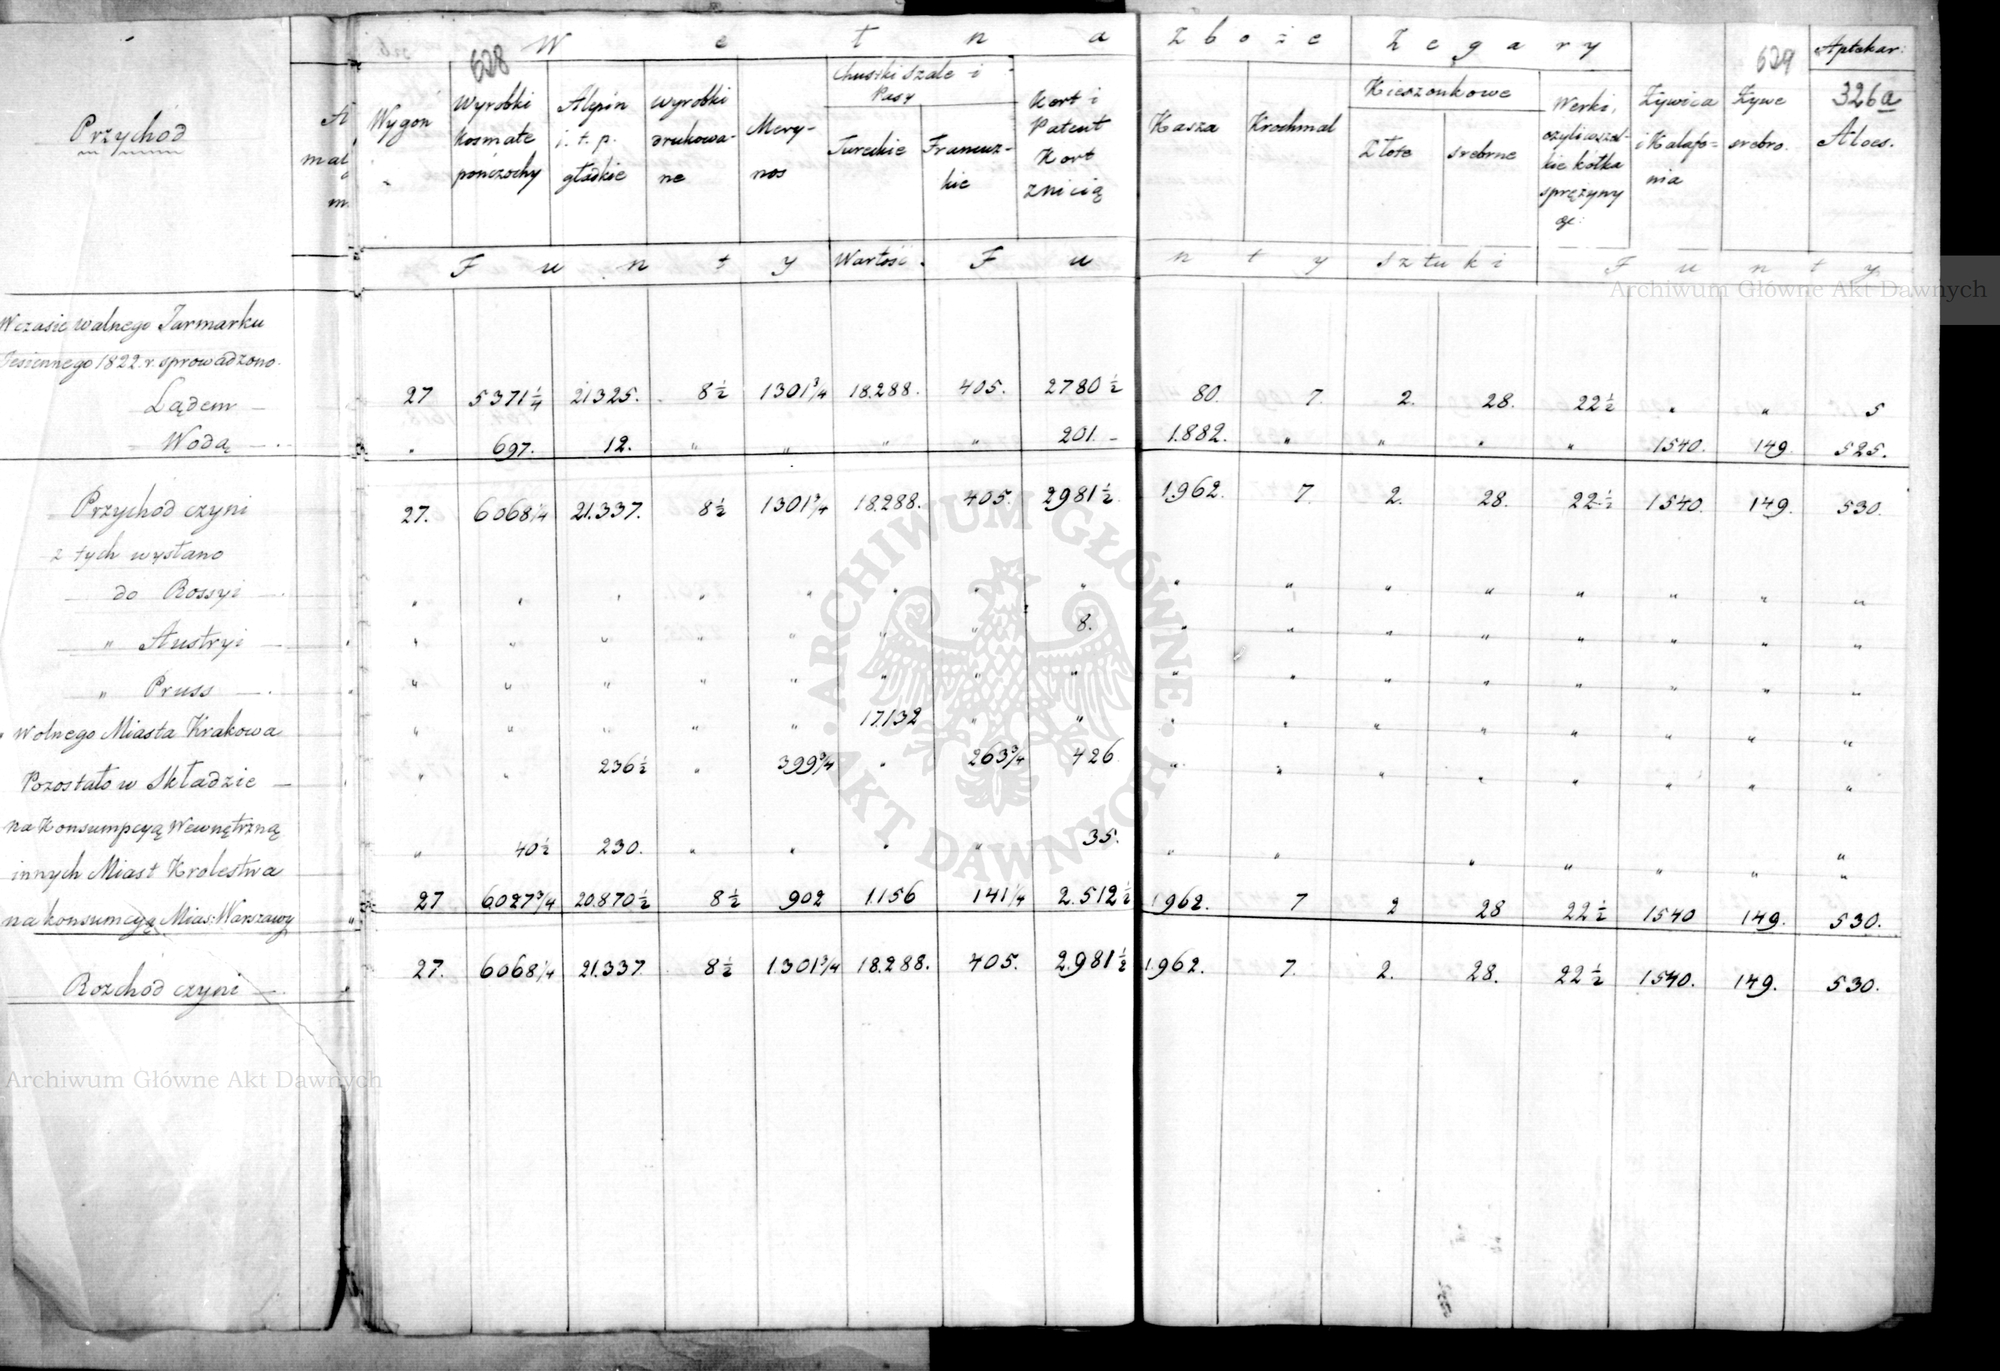 628
W e ł n a
Z b o ż e
Z e g a r y
629
Aptekar:
Przychód
Wygoń
Wyrobki
kosmate
pończochy
Alepin
i. t. p.
gładkie
wyrobki
drukowa-
ne
Mery-
nos
Chustki szale i
Pasy
Tureckie
Francuz-
kie
Kort i
Patent
Kort
znicią
Kasza
Krochmal
Kieszonkowe
Złote
srebrne
Werki,
czyli wszel-
kie kółka
sprężyny
Żywica
i Kalafo-
nia
Żywe
srebro
326a
Aloes.
F u n t y Wartość F u n t y sztuki F u n t y
Wczasie walnego Jarmarku
Jesiennego 1822. r. sprowadzono.
Lądem — 27 5371¼ 21325. 8½ 1301¾ 18.288. 405. 2780½ 80. 7. 2. 28. 22½ " " 5
Wodą — " 697. 12. " " " " 201. 1.882. " " " " 1540. 149. 525.
Przychód czyni 27. 6068¼ 21.337. 8½ 1301¾ 18.288. 405. 2981½ 1.962. 7. 2. 28. 22½ 1540. 149. 530.
z tych wysłano
do Rossyi — " " " " " " " " " " " " " " " "
" Austryi — " " " " " " " 8. " " " " " " " "
" Pruss — " " " " " " " " " " " " " " " "
" Wolnego Miasta Krakowa " " " " " 17.132 " " " " " " " " " "
Pozostało w Składzie — " " 236½ " 399¾ " 263¾ 426. " " " " " " " "
na Konsumpcyą Wewnętrzną
innych Miast Krolestwa " 40½ 230. " " " " 35. " " " " " " "
na konsumcyą Mias: Warszawy 27 6027¾ 20.870½ 8½ 902 1.156 141¼ 2.512½ 1.962. 7 2 28 22½ 1540 149. 530.
Rozchód czyni — 27. 6068¼ 21.337 8½ 1.301¾ 18.288. 405. 2.981½ 1.962. 7. 2. 28. 22½ 1540. 149. 530.
Archiwum Główne Akt Dawnych
ARCHIWUM GŁÓWNE AKT DAWNYCH
Archiwum Główne Akt Dawnych